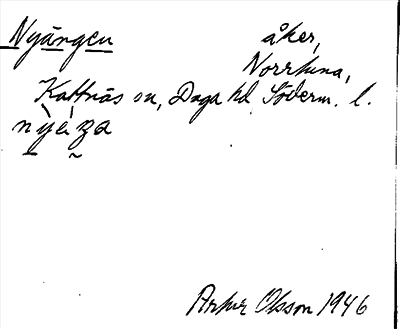 Nyängen åker,
Norrtuna,
Kattnäs sn, Daga hd, Söderm. l.
Artur Olsson 1946